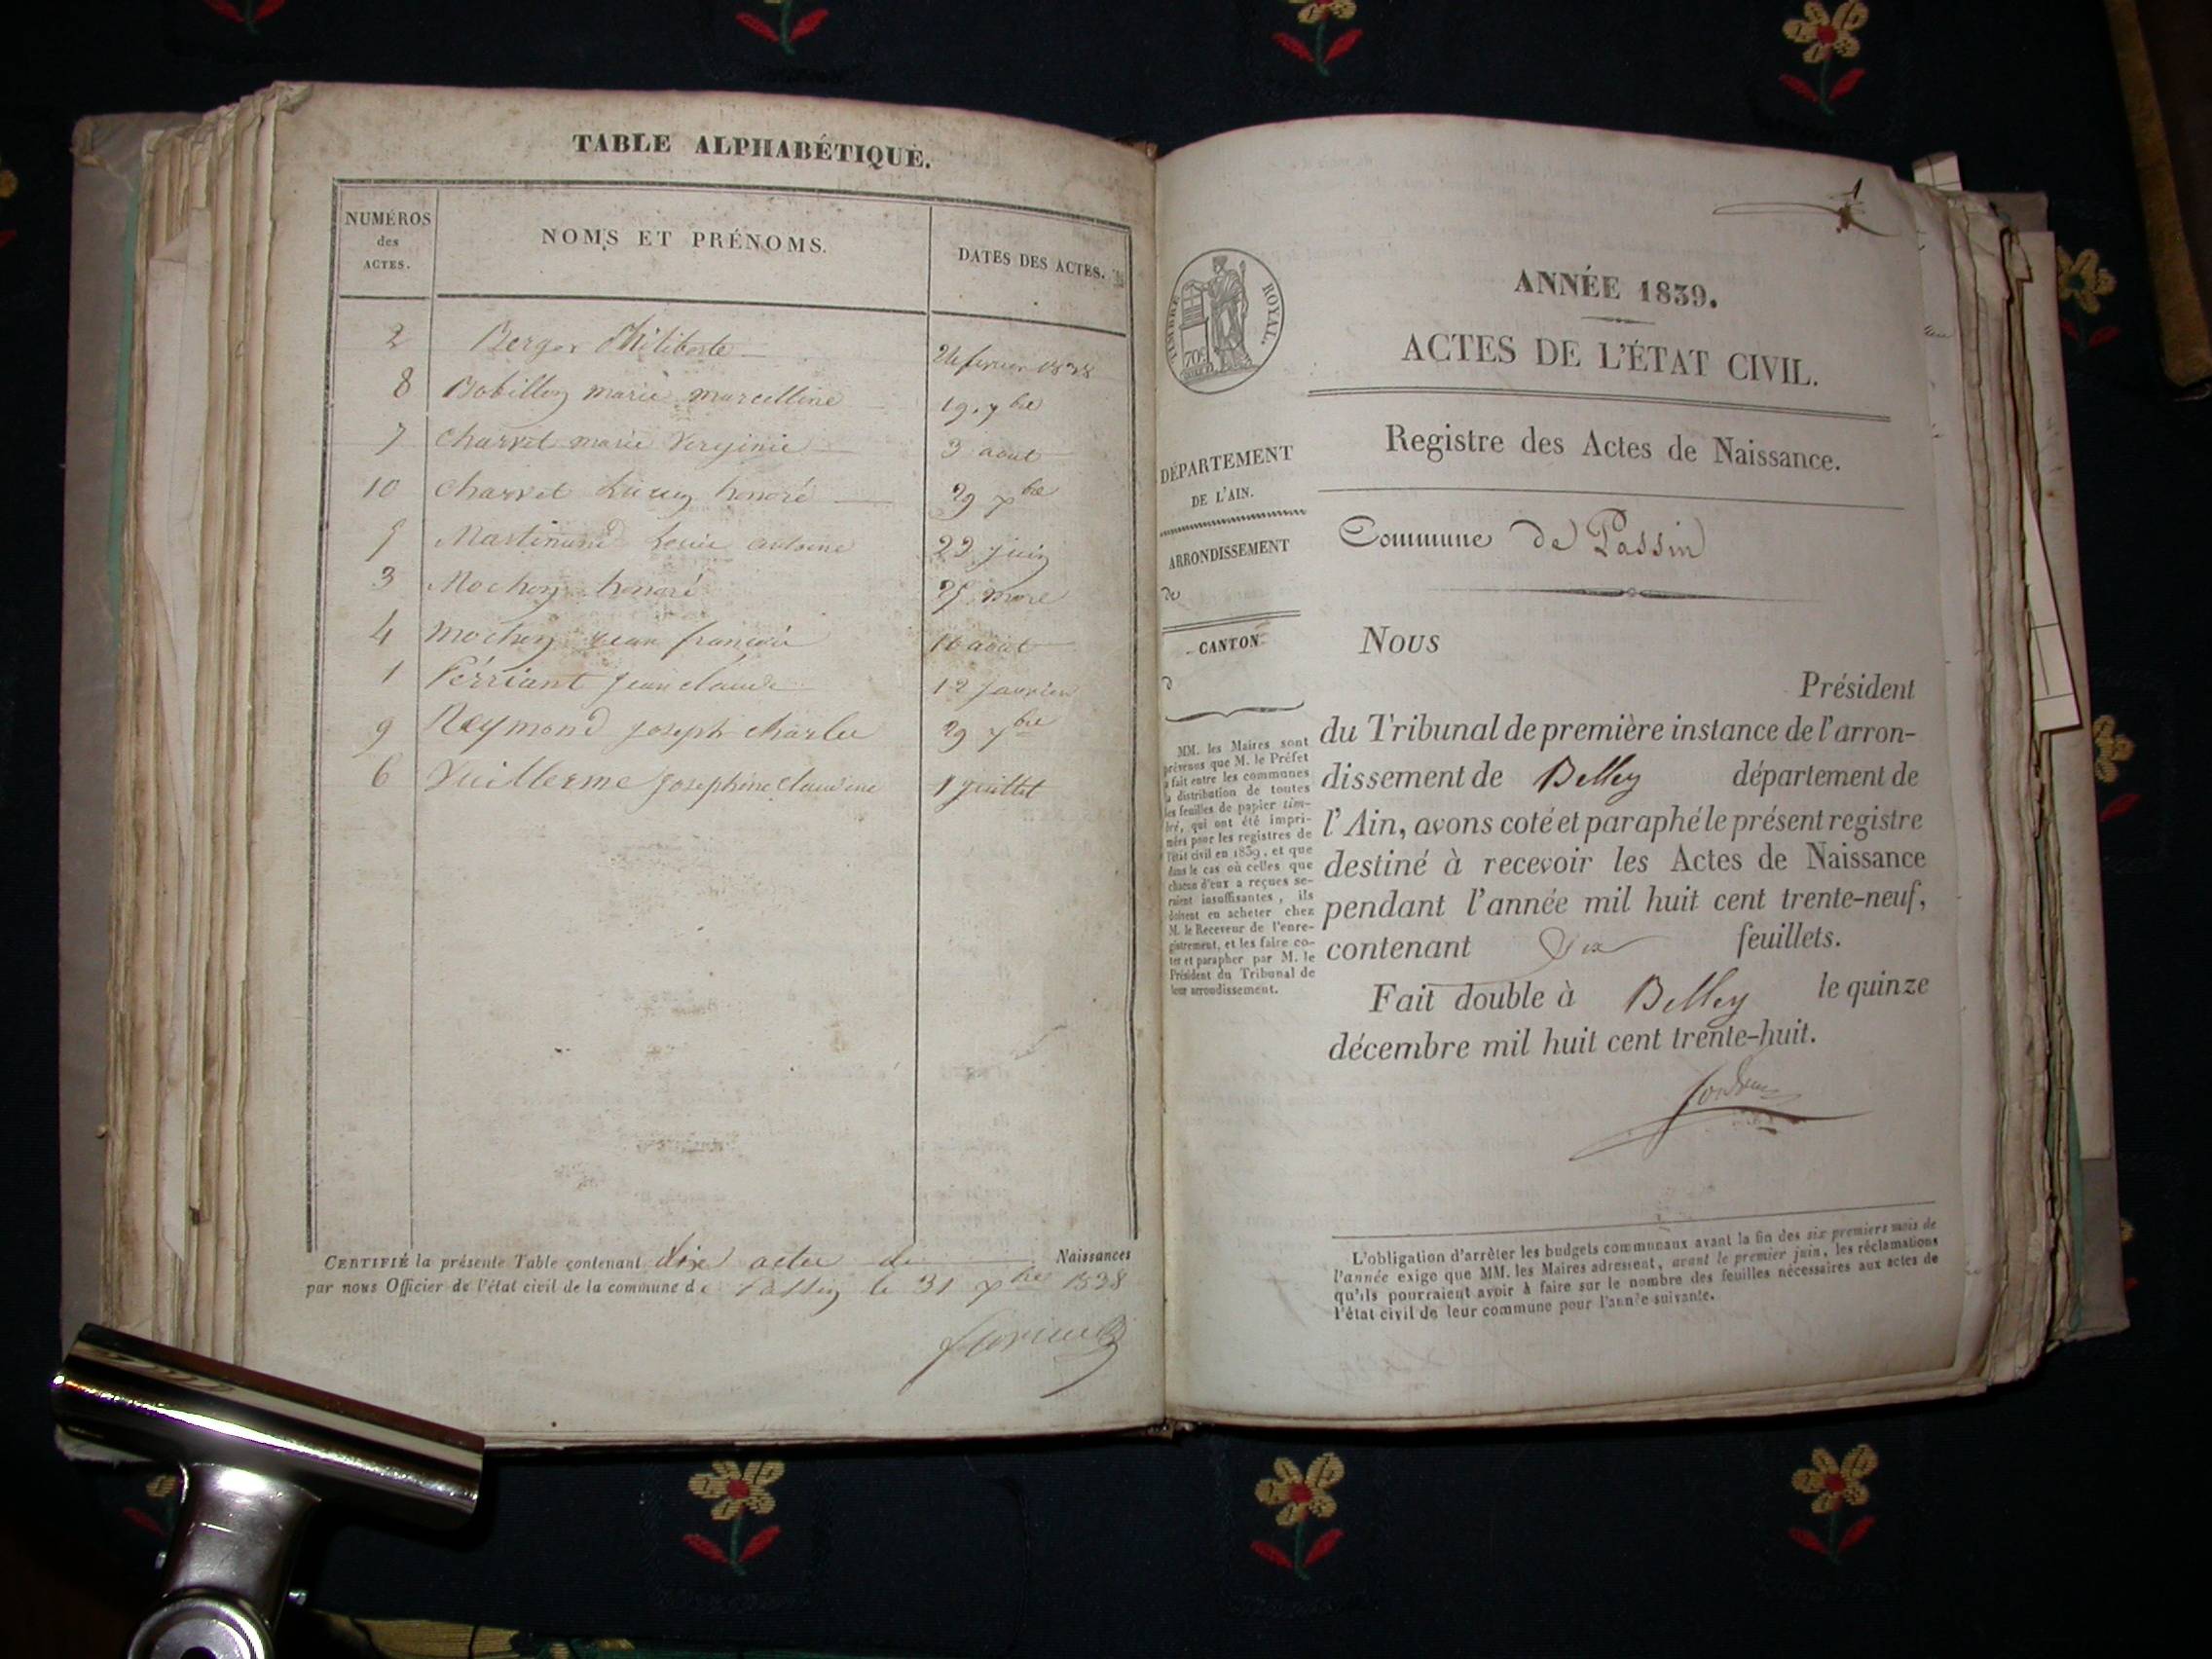 TABLE ALPHABÉTIQUE.
NUMÉROS
des
ACTES.
NOMS ET PRÉNOMS.
DATES DES ACTES.
2 Berger Philiberte 1838
8 Bobillon marie marcelline 19 7bre
7 Charvet marie Virginie 3 aout
10 Charvet honoré 29 xbre
5 Martinand Louis antoine 22 juin
3 Mochon honoré 25 mars
4 mochon jean françois 16 aout
1 Perriant jean claude 12 janvier
9 Reymond joseph charles 29 xbre
6 Vuillerme josephine claudine 1 juillet
CERTIFIÉ la présente Table contenant dix actes de Naissances
par nous Officier de l'état civil de la commune de Passin le 31 xbre 1838
TIMBRE ROYAL.
70c
ANNÉE 1839.
ACTES DE L'ÉTAT CIVIL.
Registre des Actes de Naissance.
DÉPARTEMENT
DE L'AIN.
ARRONDISSEMENT
de
CANTON
d
MM. les Maires sont
prévenus que M. le Préfet
a fait entre les communes
la distribution de toutes
les feuilles de papier tim-
bré, qui ont été impri-
mées pour les registres de
l'état civil en 1839, et que
dans le cas où celles que
chacun d'eux a reçues se-
raient insuffisantes, ils
doivent en acheter chez
M. le Receveur de l'enre-
gistrement, et les faire co-
ter et parapher par M. le
Président du Tribunal de
leur arrondissement.
Commune de Passin
Nous
Président
du Tribunal de première instance de l'arron-
dissement de Belley département de
l'Ain, avons coté et paraphé le présent registre
destiné à recevoir les Actes de Naissance
pendant l'année mil huit cent trente-neuf,
contenant feuillets.
Fait double à Belley le quinze
décembre mil huit cent trente-huit.
L'obligation d'arrêter les budgets communaux avant la fin des six premiers mois de
l'année exige que MM. les Maires adressent, avant le premier juin, les réclamations
qu'ils pourraient avoir à faire sur le nombre des feuilles nécessaires aux actes de
l'état civil de leur commune pour l'année suivante.